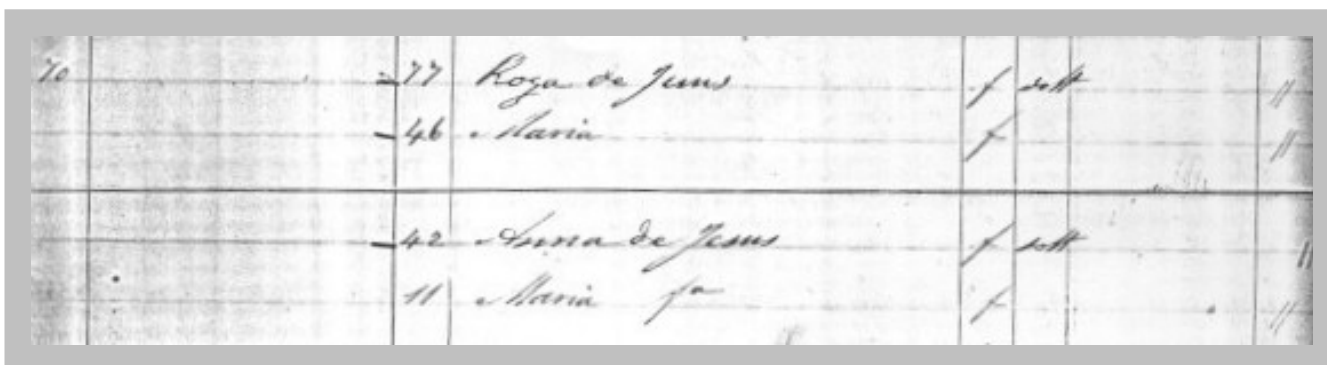 70 = 77 Roza de Jesus f solt //
- 46 Maria f //
- 42 Anna de Jesus f solt //
11 Maria fa f //